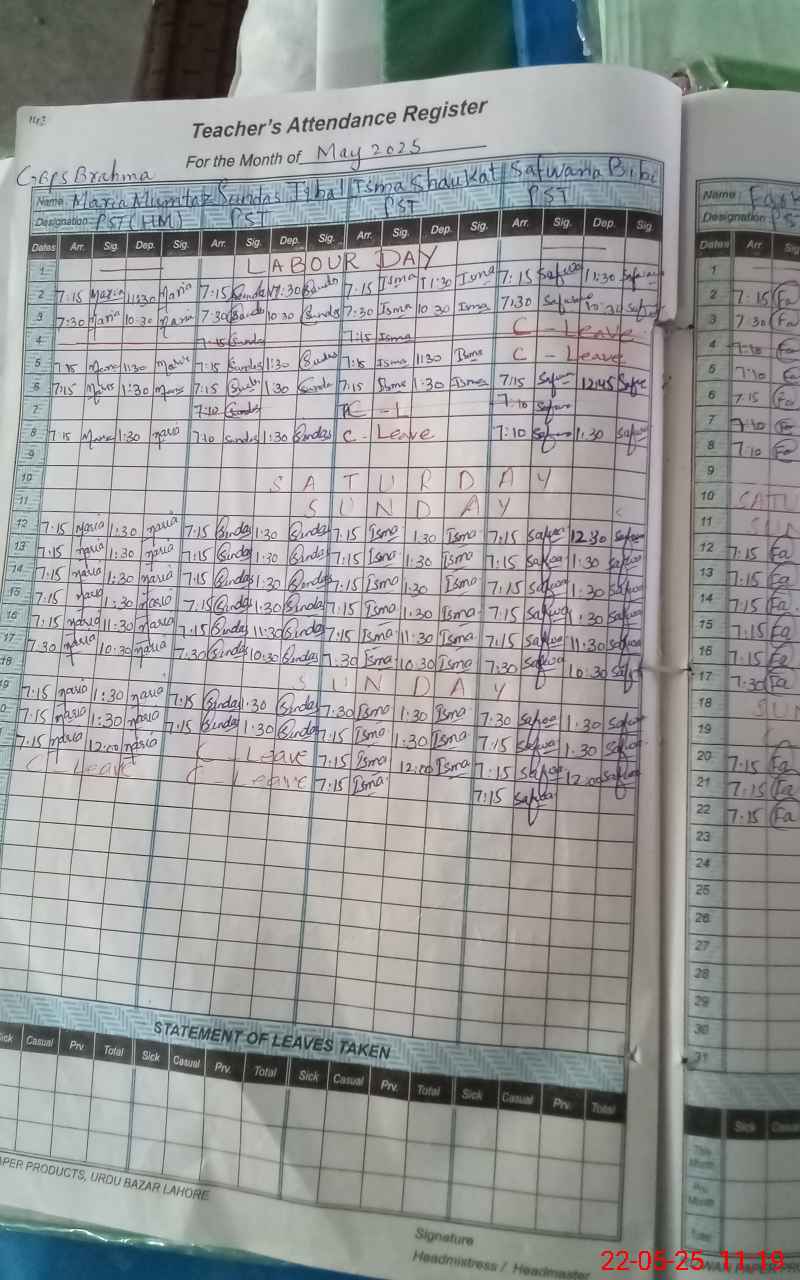 Teacher's Attendance Register
For the Month of May 2025
GGPS Brahma
Name: Maria Mumtaz Sundas Iqbal Isma Shaukat Safwana Bibi
Designation: PST (HM) PST PST PST
Dates Arr. Sig. Dep. Sig. Arr. Sig. Dep. Sig. Arr. Sig. Dep. Sig. Arr. Sig. Dep. Sig.
1 LABOUR DAY
2 7:15 Maria 11:30 Maria 7:15 Sundas 11:30 Sundas 7:15 Isma 11:30 Isma 7:15 Safwa 11:30 Safwa
3 7:30 Maria 10:30 Maria 7:30 Sundas 10:30 Sundas 7:30 Isma 10:30 Isma 7:30 Safwa 10:30 Safwa
4 7:15 Sundas 7:15 Isma C - Leave
5 7:15 Maria 1:30 Maria 7:15 Sundas 1:30 Sundas 7:15 Isma 1:30 Isma C - Leave
6 7:15 Maria 1:30 Maria 7:15 Sundas 1:30 Sundas 7:15 Isma 1:30 Isma 7:15 Safwa 12:45 Safwa
7 7:10 Sundas C - L 7:10 Safwa
8 7:15 Maria 1:30 Maria 7:10 Sundas 1:30 Sundas C - Leave 7:10 Safwa 1:30 Safwa
9
10 SATURDAY
11 SUNDAY
12 7:15 Maria 1:30 Maria 7:15 Sundas 1:30 Sundas 7:15 Isma 1:30 Isma 7:15 Safwa 12:30 Safwa
13 7:15 Maria 1:30 Maria 7:15 Sundas 1:30 Sundas 7:15 Isma 1:30 Isma 7:15 Safwa 1:30 Safwa
14 7:15 Maria 1:30 Maria 7:15 Sundas 1:30 Sundas 7:15 Isma 1:30 Isma 7:15 Safwa 1:30 Safwa
15 7:15 Maria 1:30 Maria 7:15 Sundas 1:30 Sundas 7:15 Isma 1:30 Isma 7:15 Safwa 1:30 Safwa
16 7:15 Maria 11:30 Maria 7:15 Sundas 11:30 Sundas 7:15 Isma 11:30 Isma 7:15 Safwa 11:30 Safwa
17 7:30 Maria 10:30 Maria 7:30 Sundas 10:30 Sundas 7:30 Isma 10:30 Isma 7:30 Safwa 10:30 Safwa
18 SUNDAY
7:15 Maria 1:30 Maria 7:15 Sundas 1:30 Sundas 7:30 Isma 1:30 Isma 7:30 Safwa 1:30 Safwa
7:15 Maria 1:30 Maria 7:15 Sundas 1:30 Sundas 7:15 Isma 1:30 Isma 7:15 Safwa 1:30 Safwa
7:15 Maria 12:00 Maria C - Leave 7:15 Isma 12:00 Isma 7:15 Safwa 12:00 Safwa
C - Leave C - Leave 7:15 Isma 7:15 Safwa
STATEMENT OF LEAVES TAKEN
Sick Casual Prv. Total Sick Casual Prv. Total Sick Casual Prv. Total Sick Casual Prv. Total
PAPER PRODUCTS, URDU BAZAR LAHORE
Signature
Headmistress / Headmaster
Name:
Designation: PS
Dates Arr. Sig
1
2 7:15 Fa
3 7:30 Fa
4 7:10 Fa
5 7:10 Fa
6 7:15 Fa
7 7:10 Fa
8 7:10 Fa
9
10 SATU
11 SUN
12 7:15 Fa
13 7:15 Fa
14 7:15 Fa
15 7:15 Fa
16 7:15 Fa
17 7:30 Fa
18 SUN
19 C
20 7:15 Fa
21 7:15 Fa
22 7:15 Fa
23
24
25
26
27
28
29
30
31
Sick Casu
This Month
Prv. Month
Total
22-05-25 11:19